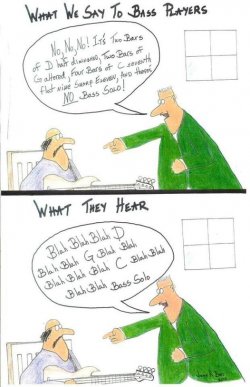 WHAT WE SAY TO BASS PLAYERS
No, No, No! It's Two Bars
of D half diminished, Two Bars of
G altered, Four Bars of C seventh
flat nine Sharp Eleven, and there's
NO Bass Solo!
WHAT THEY HEAR
Blah Blah Blah D
Blah Blah G Blah Blah
Blah Blah C Blah Blah
Blah Blah Bass Solo